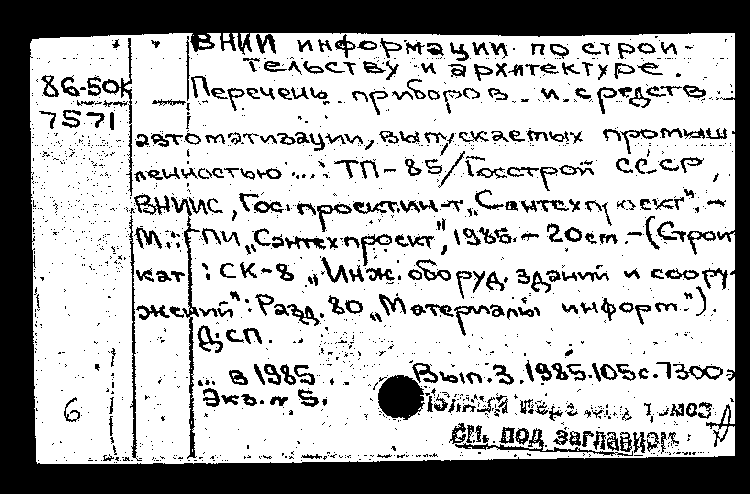 ВНИИ информации по строи-
тельству и архитектуре.
86-50К Перечень приборов и средств
7571
автоматизации, выпускаемых промыш-
ленностью ...: ТП-85/Госстрой СССР,
ВНИИС, Гос. проектин-т „Сантехпроект". -
М.: ГПИ „Сантехпроект", 1985. - 20см. - (Строит.
кат : СК-8 „Инж. оборуд. зданий и соору-
жений": Разд. 80 „Материалы информ.").
ДСП.
... в 1985 .. Вып. 3. 1985. 105с. 7300э
Экз. № 5.
6 Полный перечень томов
см. под заглавием